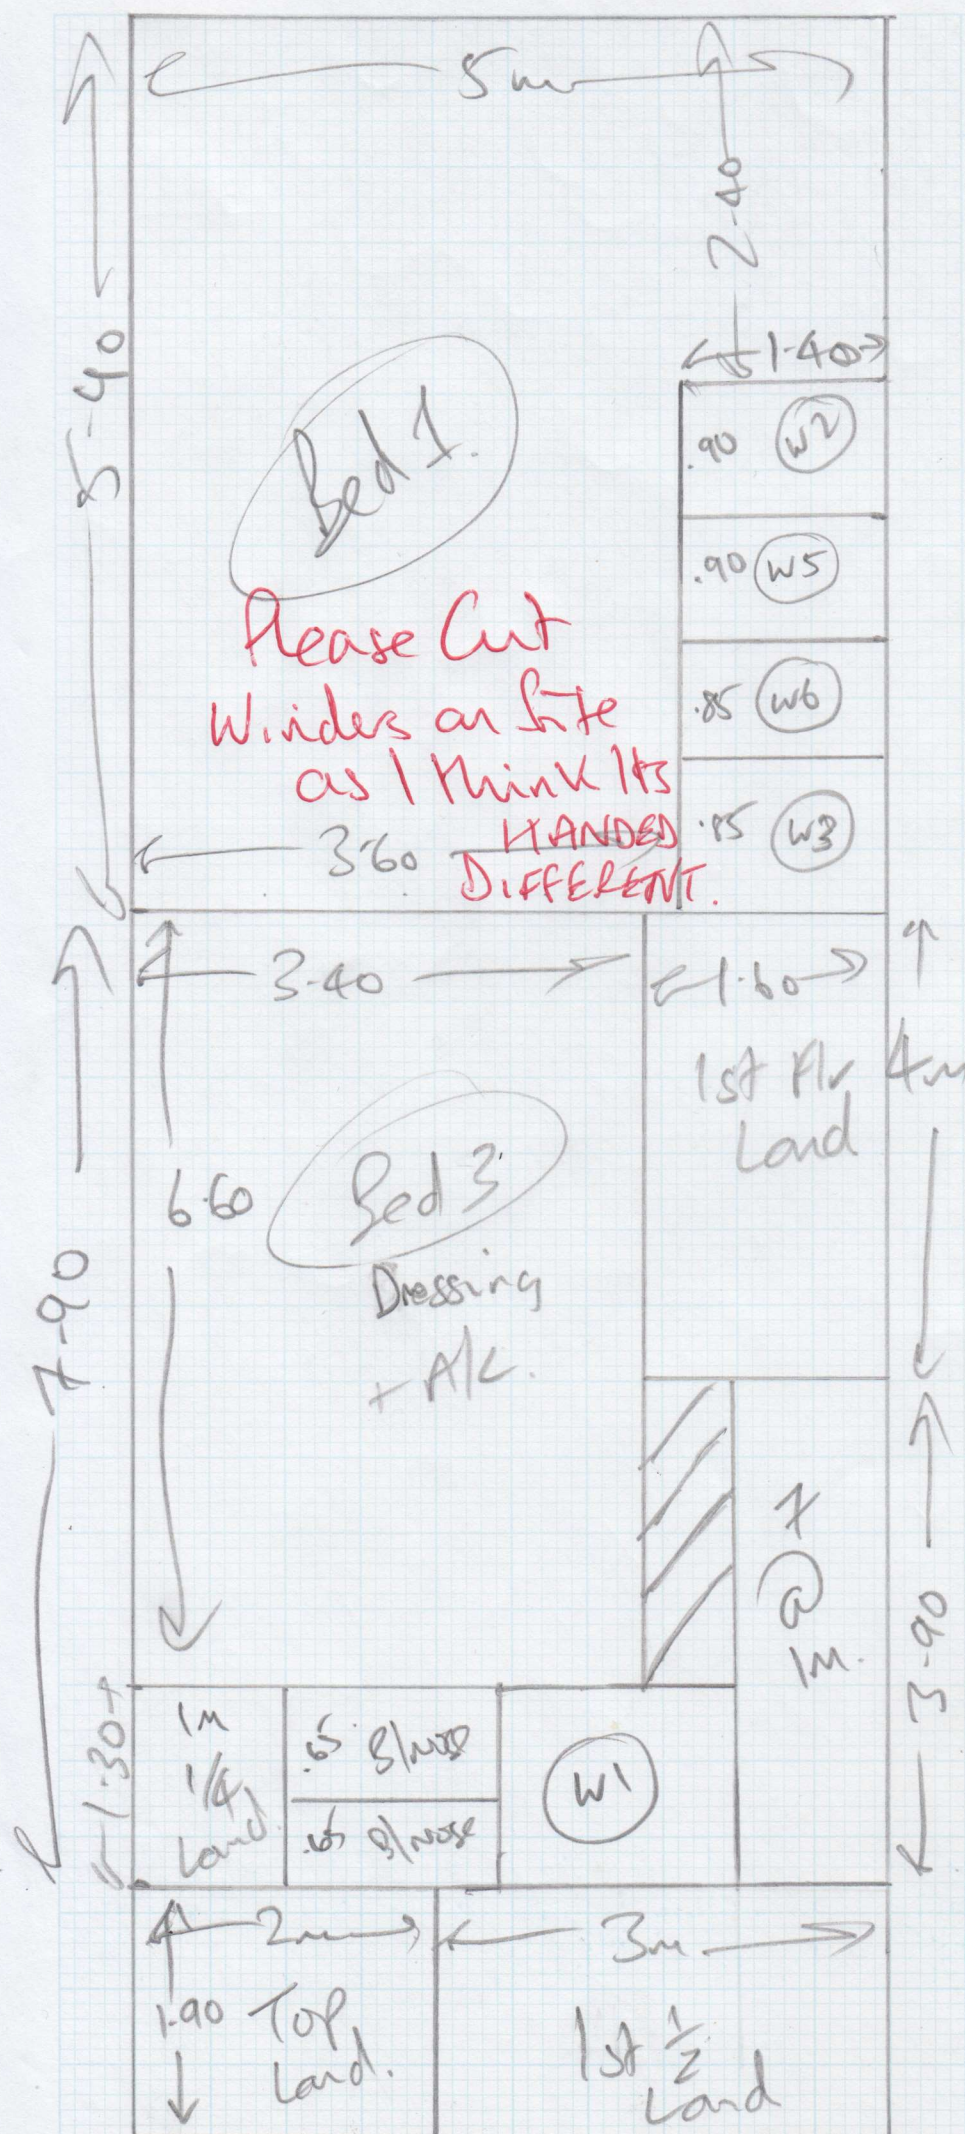 5m
2-40
1-40
5-40
Bed 1.
.90 W2
.90 W5
.85 W6
.85 W3
Please Cut
Winders on Site
as I think Its
HANDED
DIFFERENT.
3-60
3-40
1-60
1st Flr
Land
4m
6-60
Bed 3
Dressing
+ A/C.
7-90
7
@
1M.
3-90
1-30
1M
1/4
Land
.65 B/Nose
.65 B/Nose
W1
2m
3m
1-90 Top
Land.
1st 1/2
Land